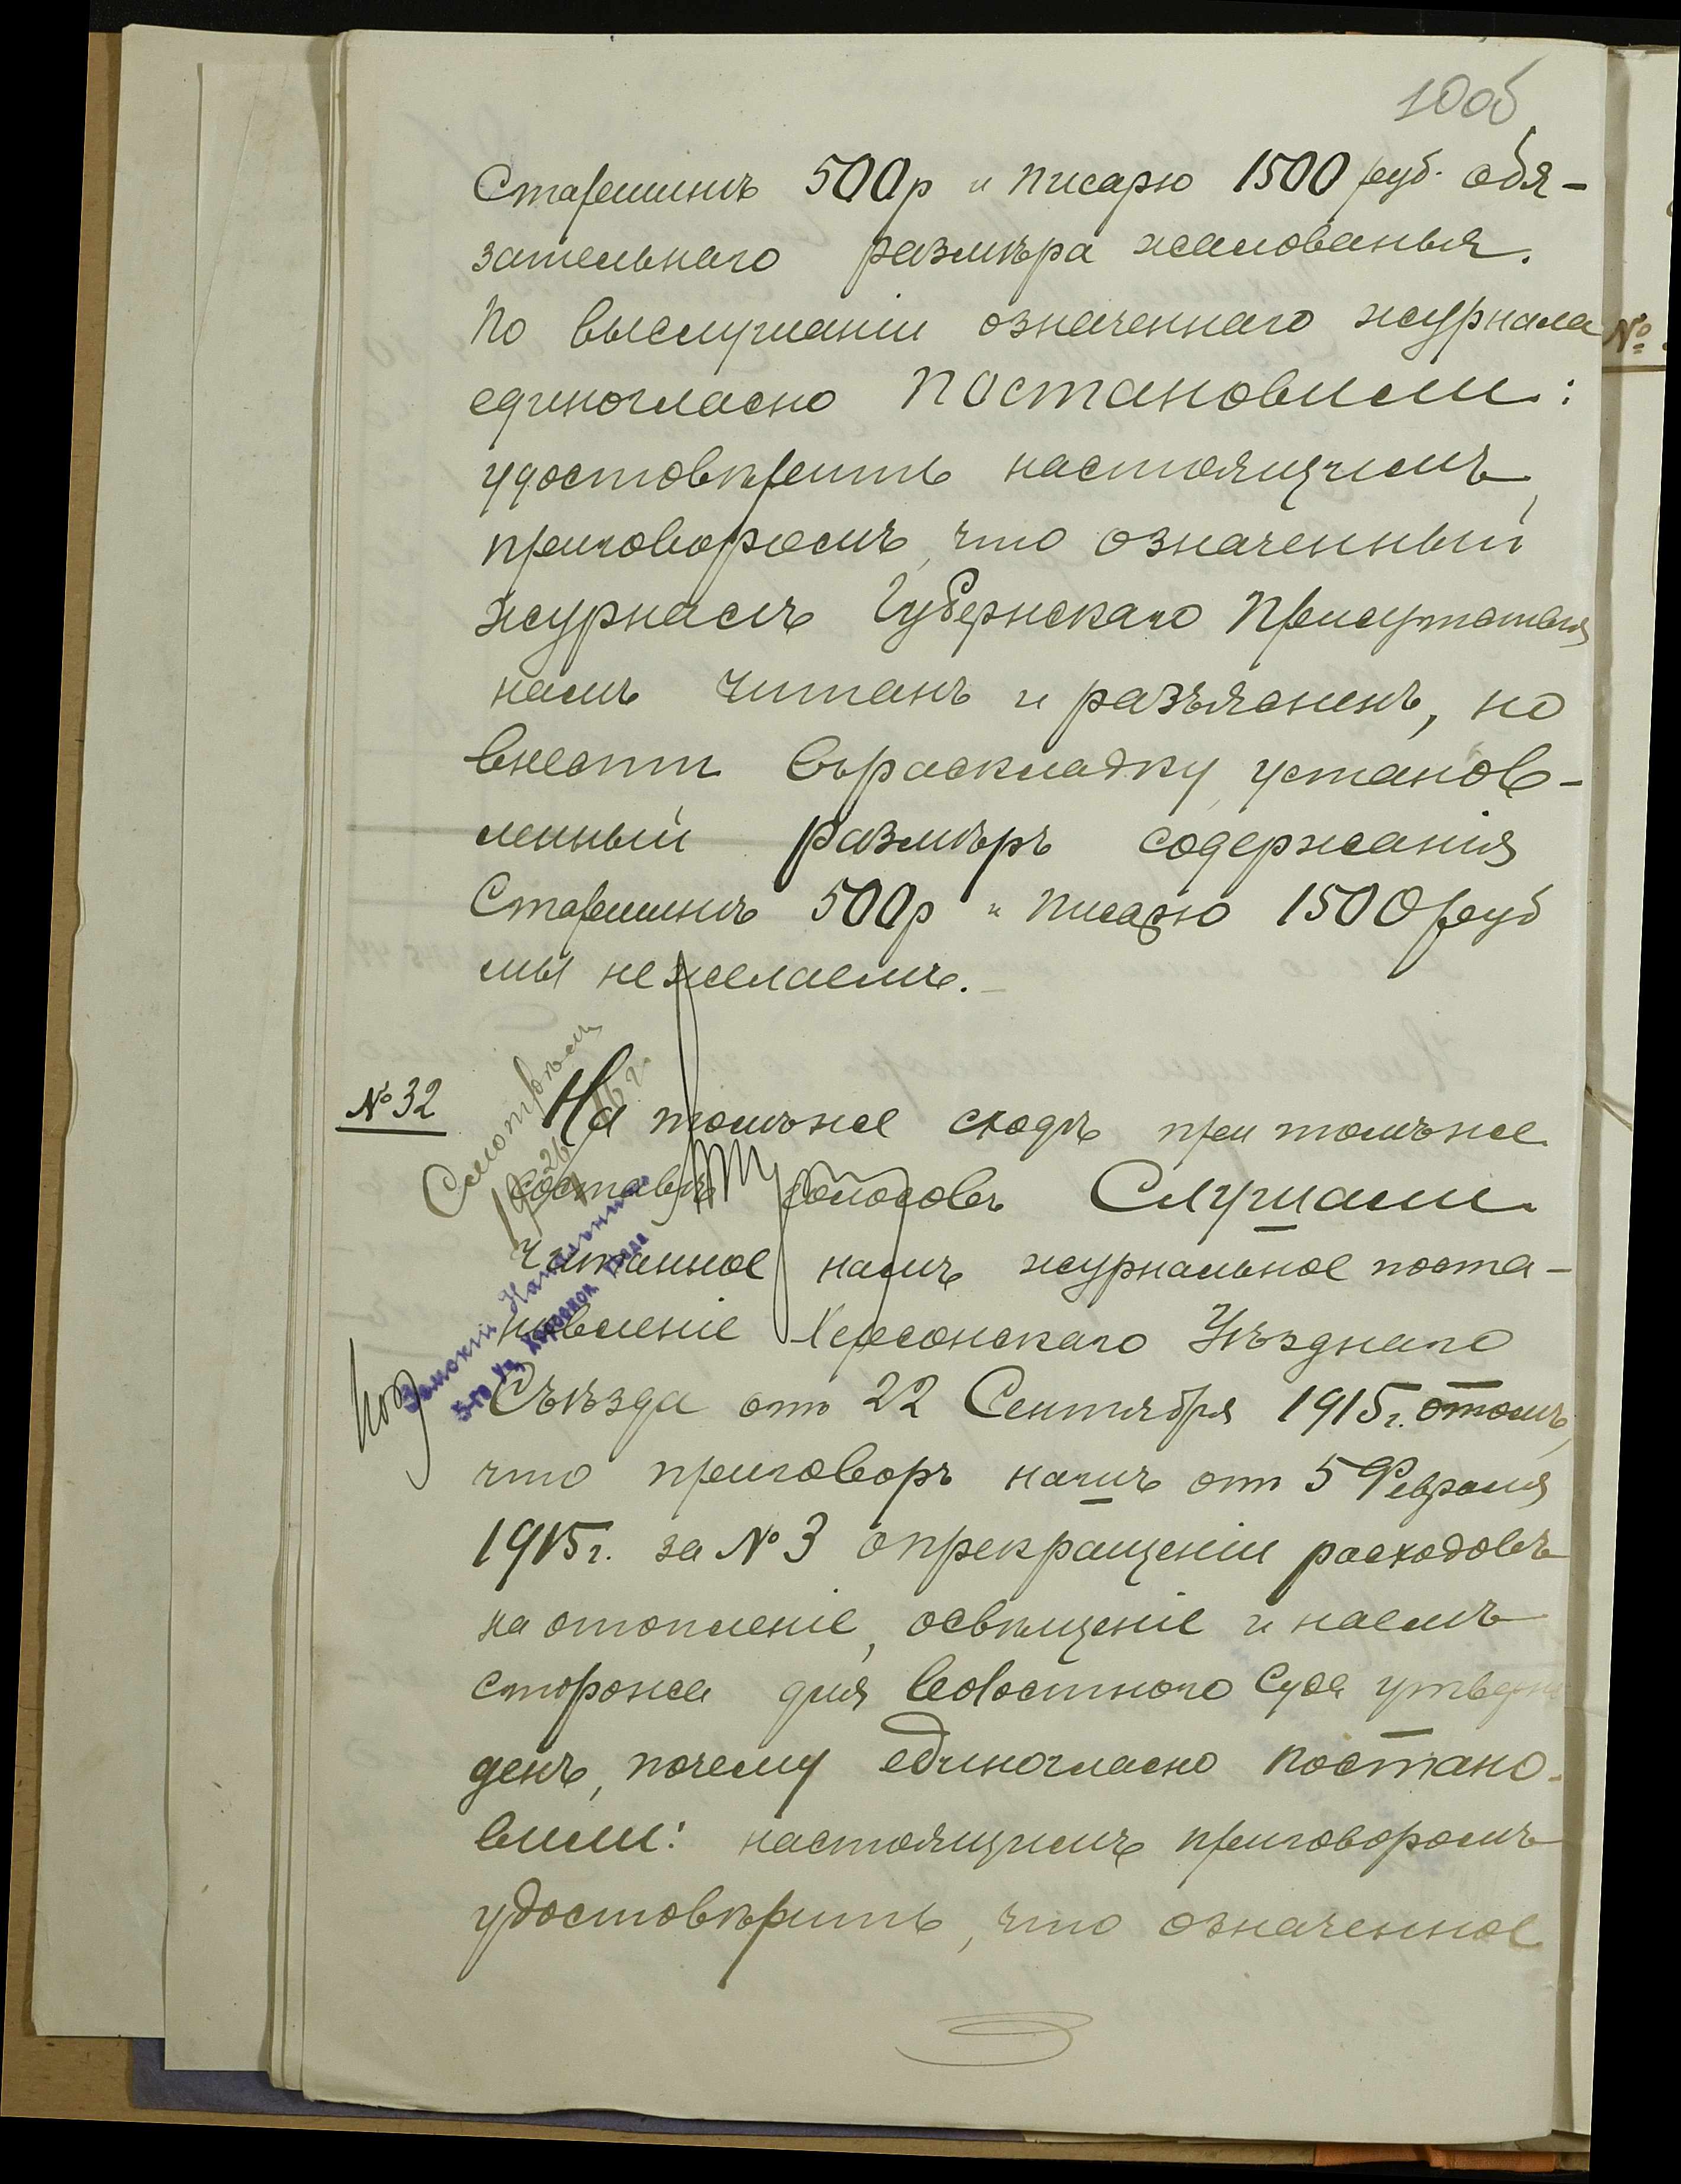 10об
Старшинѣ 500р и писарю 1500 руб. обя-
зательнаго размѣра жалованья.
По выслушаніи означеннаго журнала
единогласно постановили:
удостовѣрить настоящимъ
приговоромъ, что означенный
журналъ Губернскаго Присутствія
намъ читанъ и разъясненъ, но
внести въраскладку установ-
ленный размѣръ содержанія
Старшинѣ 500р и писарю 1500 руб
мы нежелаемъ.
№
№ 32
На томъже сходѣ при томъже
составѣ голосовъ Слушали
читанное намъ журнальное поста-
новленіе Херсонскаго Уѣзднаго
Съѣзда отъ 22 Сентября 1915г. отомъ,
что приговоръ нашъ отъ 5 Февраля
1915г. за № 3 опрекращеніи расходовъ
на отопленіе, освѣщеніе и наемъ
сторожа для волостного Суда утверж
денъ, почему единогласно постано-
вили: настоящимъ приговоромъ
удостовѣрить, что означенное
Смотрѣлъ
Земскій Начальникъ